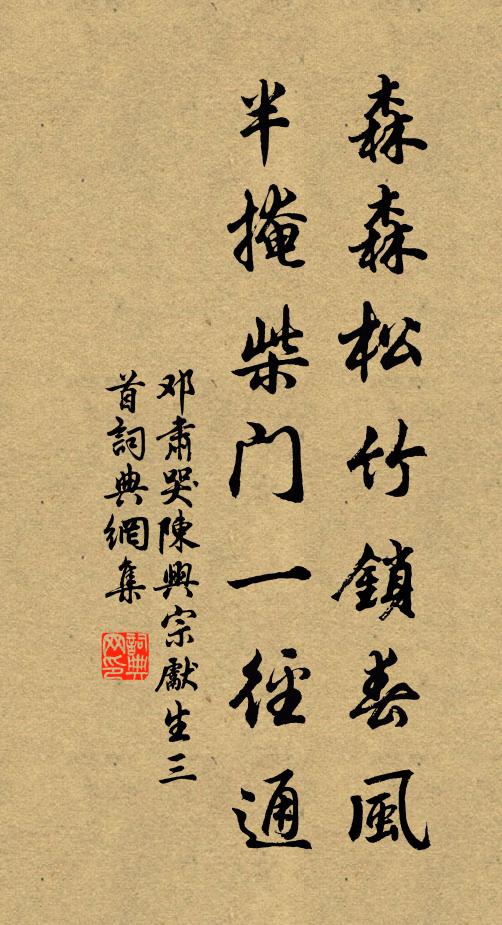 森森松竹鎖春風
半掩柴門一徑通
邓肅哭陳興宗獻生三
首詞典網集
詞典
网印